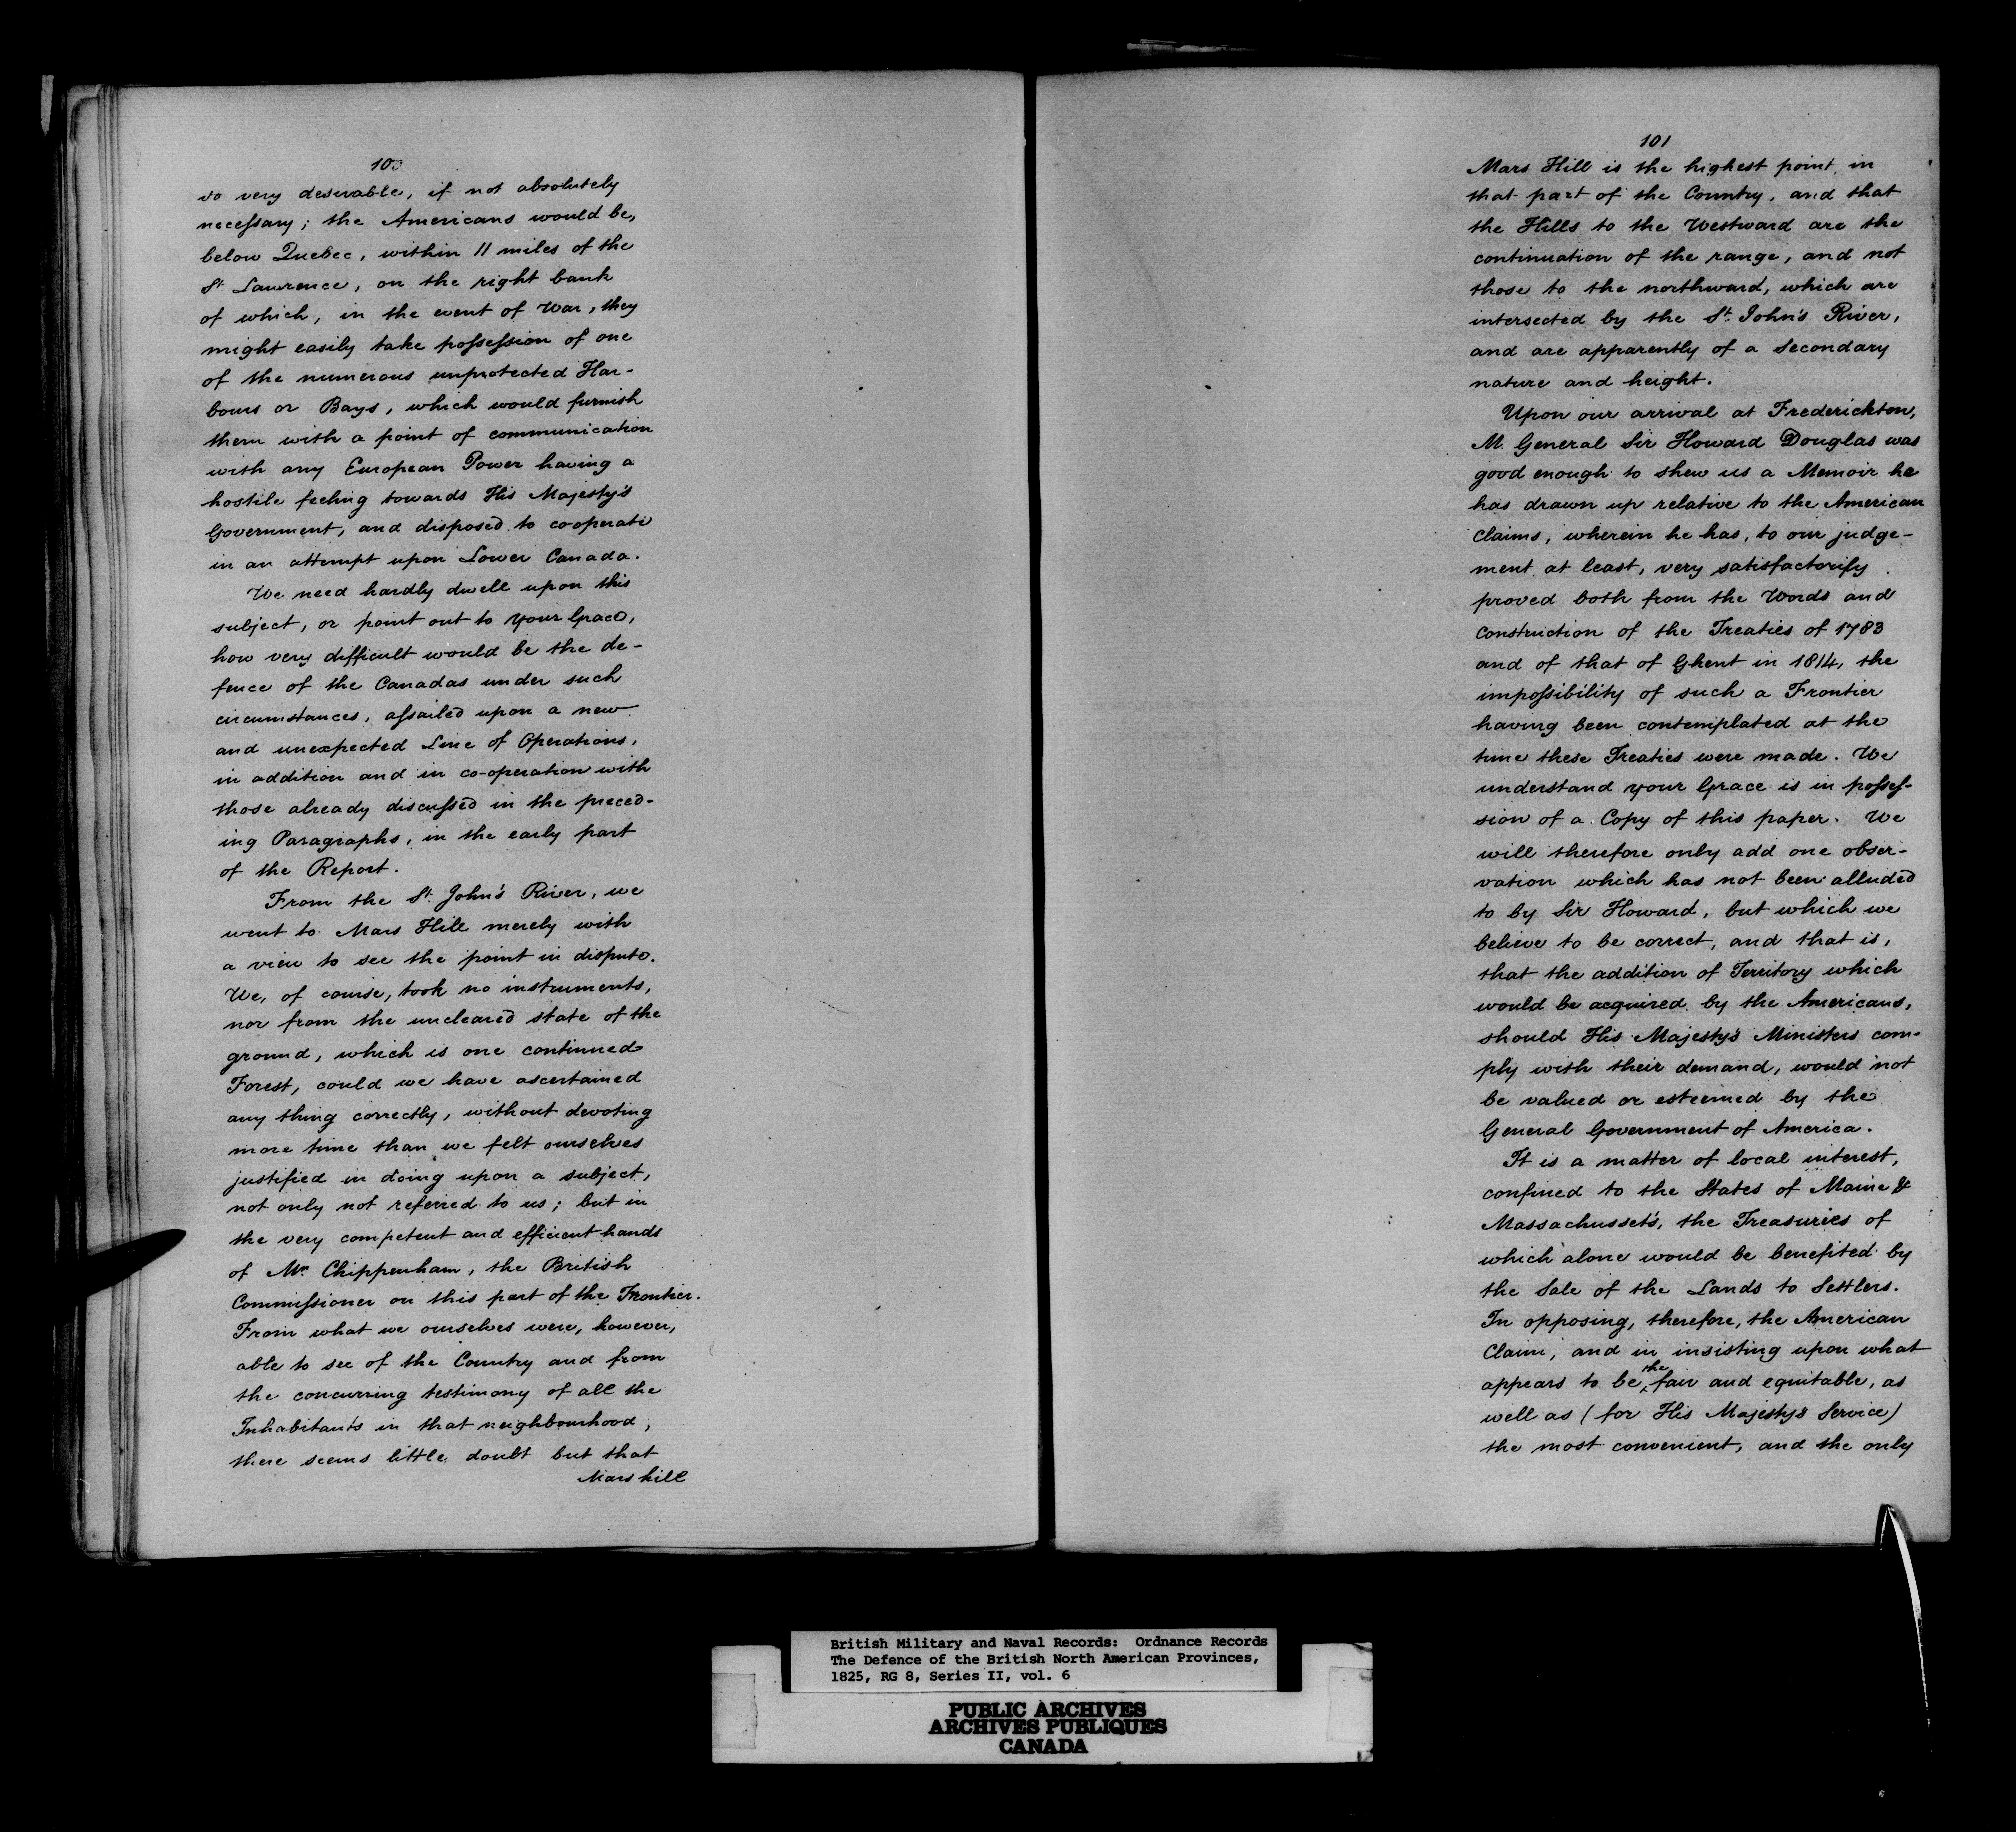 100
so very desirable, if not absolutely
necessary; the Americans would be,
below Quebec, within 11 miles of the
St. Lawrence, on the right bank
of which, in the event of War, they
might easily take possession of one
of the numerous unprotected Har-
bours or Bays, which would furnish
them with a point of communication
with any European Power having a
hostile feeling towards His Majesty's
Government, and disposed to co-operate
in an attempt upon Lower Canada.
We need hardly dwell upon this
subject, or point out to your Grace,
how very difficult would be the de-
fence of the Canadas under such
circumstances, assailed upon a new
and unexpected Line of Operations,
in addition and in co-operation with
those already discussed in the preced-
ing Paragraphs, in the early part
of the Report.
From the St. John's River, we
went to Mars Hill merely with
a view to see the point in dispute.
We, of course, took no instruments,
nor from the uncleared state of the
ground, which is one continued
Forest, could we have ascertained
any thing correctly, without devoting
more time than we felt ourselves
justified in doing upon a subject,
not only not referred to us; but in
the very competent and efficient hands
of Mr. Chippenham, the British
Commissioner on this part of the Frontier.
From what we ourselves were, however,
able to see of the Country and from
the concurring testimony of all the
Inhabitants in that neighbourhood,
there seems little doubt but that
Mars hill
101
Mars Hill is the highest point in
that part of the Country, and that
the Hills to the Westward are the
continuation of the range, and not
those to the northward, which are
intersected by the St. John's River,
and are apparently of a Secondary
nature and height.
Upon our arrival at Frederickton,
M. General Sir Howard Douglas was
good enough to shew us a Memoir he
has drawn up relative to the American
Claims, wherein he has, to our judge-
ment at least, very satisfactorify
proved both from the Words and
Construction of the Treaties of 1783
and of that of Ghent in 1814, the
impossibility of such a Frontier
having been contemplated at the
time these Treaties were made. We
understand your Grace is in posses-
sion of a Copy of this paper. We
will therefore only add one obser-
vation which has not been alluded
to by Sir Howard, but which we
believe to be correct, and that is,
that the addition of Territory which
would be acquired by the Americans,
should His Majesty's Ministers com-
ply with their demand, would not
be valued or esteemed by the
General Government of America.
It is a matter of local interest,
confined to the States of Maine &
Massachussets, the Treasuries of
which alone would be benefited by
the Sale of the Lands to Settlers.
In opposing, therefore, the American
Claim, and in insisting upon what
appears to be the fair and equitable, as
well as (for His Majesty's Service)
the most convenient, and the only
British Military and Naval Records: Ordnance Records
The Defence of the British North American Provinces,
1825, RG 8, Series II, vol. 6
PUBLIC ARCHIVES
ARCHIVES PUBLIQUES
CANADA